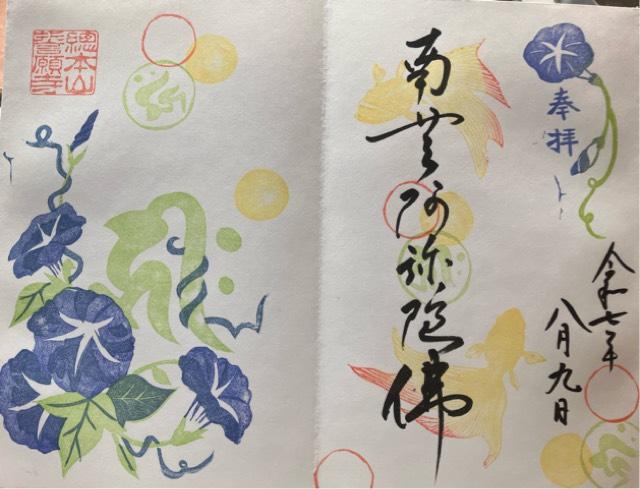 奉拝
令和七年
八月九日
南無阿弥陀佛
總本山
誓願寺